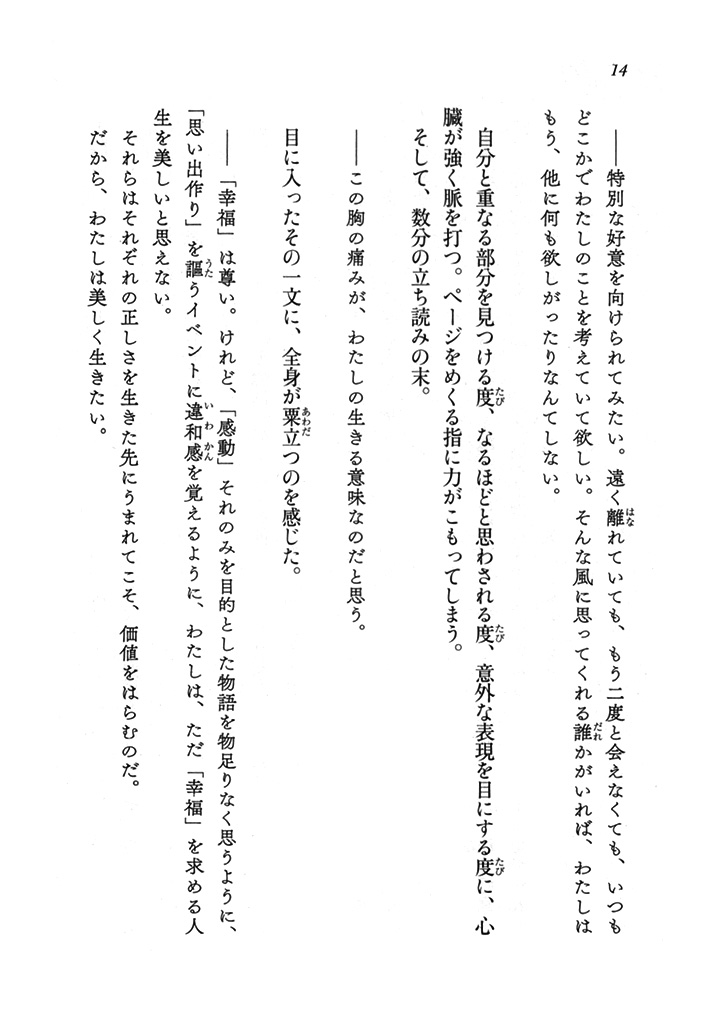 14
――特別な好意を向けられてみたい。遠く離れていても、もう二度と会えなくても、いつも
どこかでわたしのことを考えていて欲しい。そんな風に思ってくれる誰かがいれば、わたしは
もう、他に何も欲しがったりなんてしない。
自分と重なる部分を見つける度、なるほどと思わされる度、意外な表現を目にする度に、心
臓が強く脈を打つ。ページをめくる指に力がこもってしまう。
そして、数分の立ち読みの末。
――この胸の痛みが、わたしの生きる意味なのだと思う。
目に入ったその一文に、全身が粟立つのを感じた。
――「幸福」は尊い。けれど、「感動」それのみを目的とした物語を物足りなく思うように、
「思い出作り」を謳うイベントに違和感を覚えるように、わたしは、ただ「幸福」を求める人
生を美しいと思えない。
それらはそれぞれの正しさを生きた先にうまれてこそ、価値をはらむのだ。
だから、わたしは美しく生きたい。